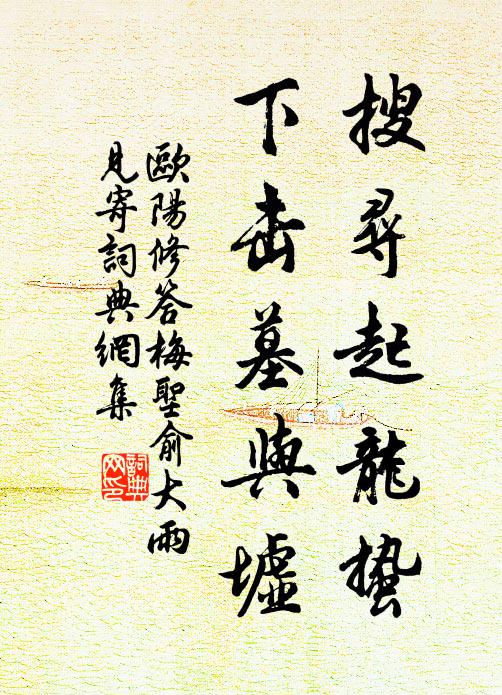 搜尋起龍蟄
下击墓與墟
歐陽修答梅聖俞大雨
見寄詞典網集
詞典网印